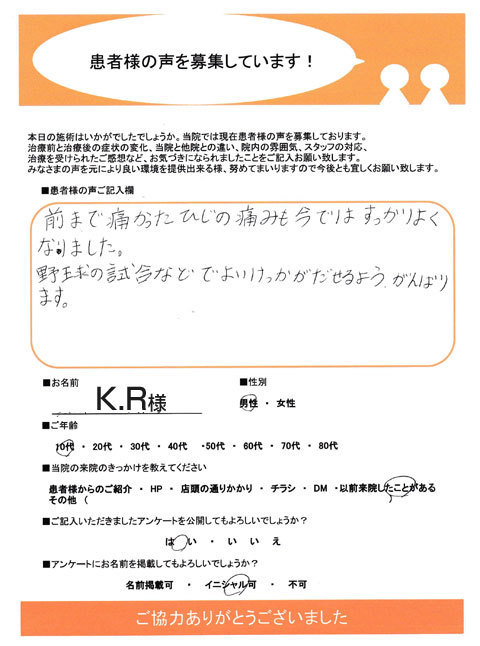 患者様の声を募集しています！
本日の施術はいかがでしたでしょうか。当院では現在患者様の声を募集しております。
治療前と治療後の症状の変化、当院と他院との違い、院内の雰囲気、スタッフの対応、
治療を受けられたご感想など、お気づきになられましたことをご記入お願い致します。
みなさまの声を元により良い環境を提供出来る様、努めてまいりますので今後とも宜しくお願い致します。
■患者様の声ご記入欄
前まで痛かったひじの痛みも今ではすっかりよく
なりました。
野球の試合などでよいけっかがだせるよう、がんばり
ます。
■お名前
K.R様
■性別
男性 ・ 女性
■ご年齢
10代 ・ 20代 ・ 30代 ・ 40代 ・50代 ・ 60代 ・ 70代 ・ 80代
■当院の来院のきっかけを教えてください
患者様からのご紹介 ・ HP ・ 店頭の通りかかり ・ チラシ ・ DM ・以前来院したことがある
その他（ ）
■ご記入いただきましたアンケートを公開してもよろしいでしょうか？
はい ・ いいえ
■アンケートにお名前を掲載してもよろしいでしょうか？
名前掲載可 ・ イニシャル可 ・ 不可
ご協力ありがとうございました